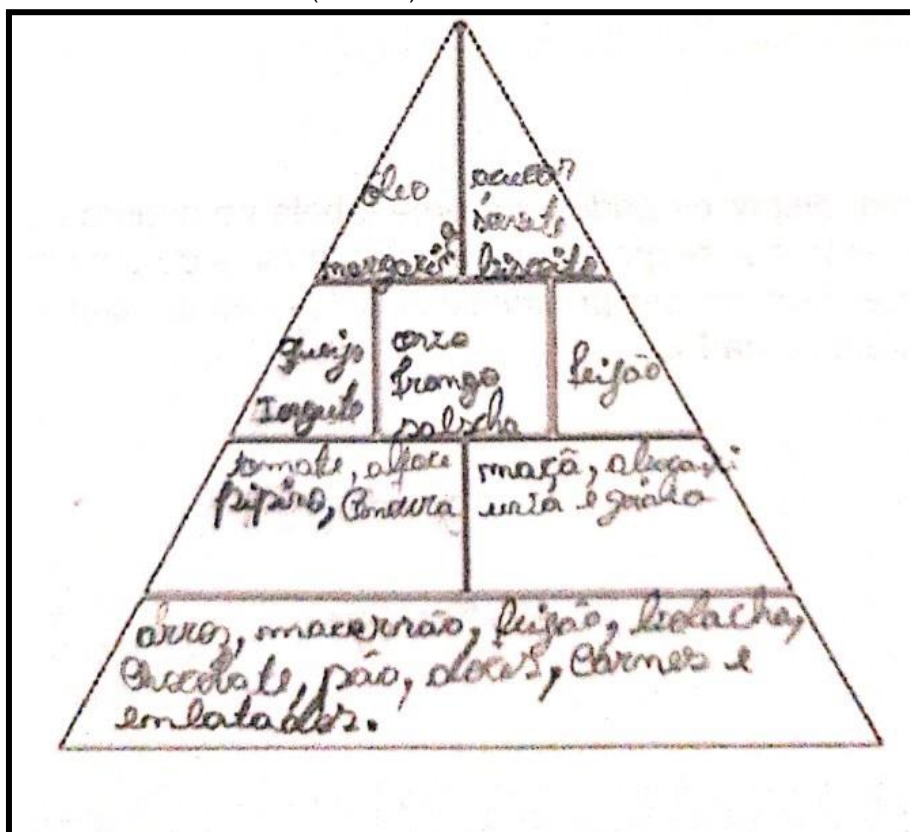 óleo
margarina
acucar
sorvete
biscoito
Queijo
Iogute
ovo
frango
salscha
feijão
tomate, alface
pipino, Cenoura
maçã, abacaxi
uva e goiaba
arroz, macarrão, feijão, bolacha,
Chocolate, pão, doces, Carnes e
enlatados.